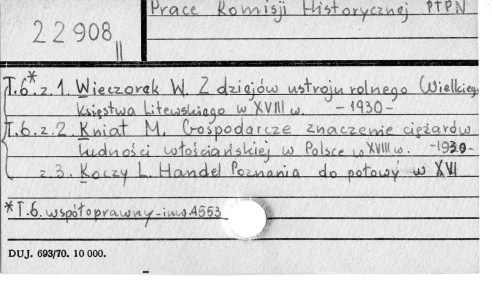 Prace Komisji Historycznej PTPN
22908 II
T.6*.z.1. Wieczorek W. Z dziejów ustroju rolnego Wielkieg.
Księstwa Litewskiego w XVIII w. -1930-
T.6.z.2. Kniat M. Gospodarcze znaczenie ciężarów
ludności włościańskiej w Polsce w XVIII w. -1930-
z.3. Koczy L. Handel Poznania do połowy w XVI
*T.6. współoprawny-ims.A553
DUJ. 693/70. 10 000.